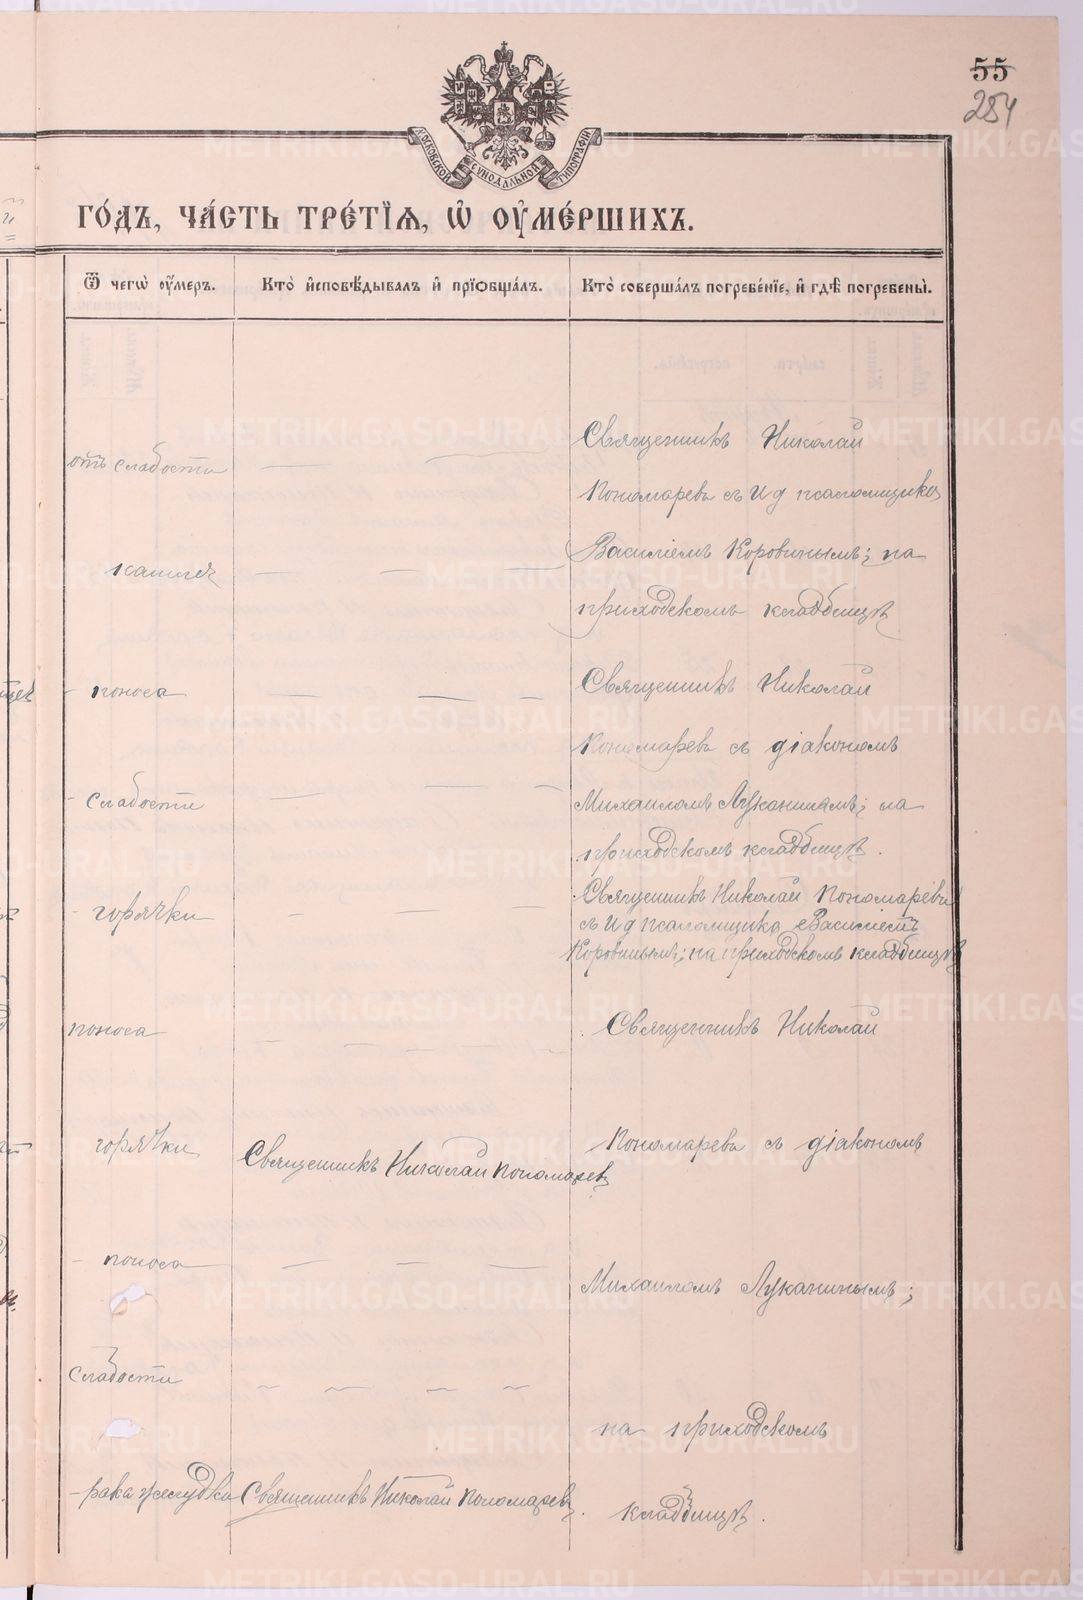 55
254
МОСКОВСКОЙ СѴНОДАЛЬНОЙ ТИПОГРАФІИ
ГО́ДЪ, ЧА́СТЬ ТРЕ́ТІѦ, Ѡ҆ ОУ҆МЕ́РШИХЪ.
Ѿ чегѡ̀ оу҆́меръ.
Кто̀ и҆сповѣ́дывалъ и҆ прїѻбща́лъ.
Кто̀ соверша́лъ погребе́нїе, и҆ гдѣ̀ погребены̀.
Священникъ Николай
отъ слабости
Пономаревъ съ И д псаломщика
Василіемъ Коровинымъ; на
кашля
приходскомъ кладбищѣ
- поноса
Священникъ Николай
Пономаревъ съ діакономъ
- слабости
Михаиломъ Луканинымъ; на
приходскомъ кладбищѣ.
- горячки
Священникъ Николай Пономаревъ
съ И д псаломщика Василіемъ
Коровинымъ; на приходскомъ кладбищѣ
поноса
Священникъ Николай
горячки
Священникъ Николай Пономаревъ
Пономаревъ съ діакономъ
- поноса
Михаиломъ Луканинымъ;
слабости
на приходскомъ
- рака желудка
Священникъ Николай Пономаревъ.
кладбищѣ.
METRIKI.GASO-URAL.RU